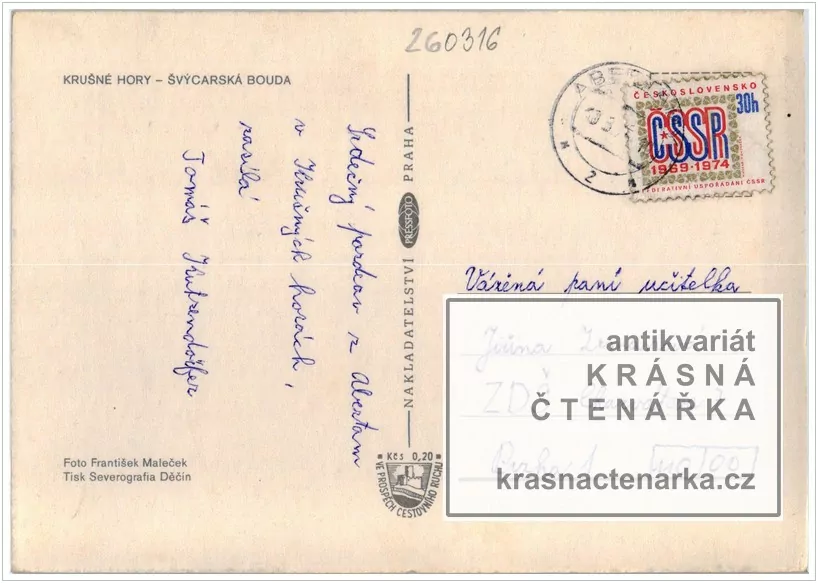 260316
KRUŠNÉ HORY – ŠVÝCARSKÁ BOUDA
Srdečný pozdrav z Abertam
v Krušných horách,
zasílá
Tomáš Kutzendörfer
Foto František Maleček
Tisk Severografia Děčín
NAKLADATELSTVÍ PRESSFOTO PRAHA
Kčs 0,20
VE PROSPĚCH CESTOVNÍHO RUCHU
ČESKOSLOVENSKO
30h
ČSSR
1969·1974
FEDERATIVNÍ USPOŘÁDÁNÍ ČSSR
Vážená paní učitelka
Jiřina
ZDŠ
Praha 1 110 00
antikvariát
KRÁSNÁ
ČTENÁŘKA
krasnactenarka.cz